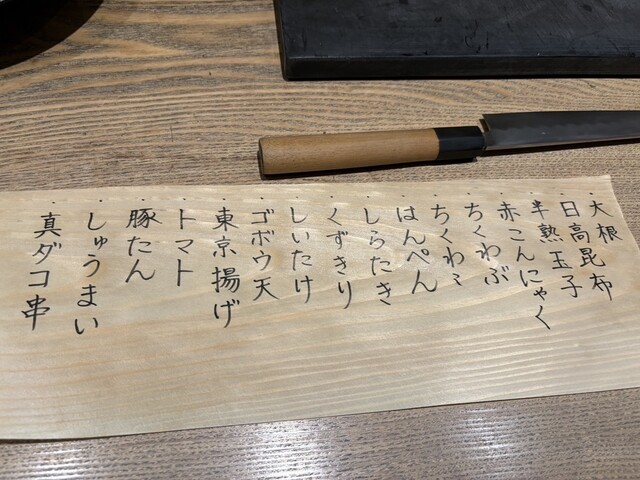 ・大根
・日高昆布
・半熟玉子
・赤こんにゃく
・ちくわぶ
・ちくわ
・はんぺん
・しらたき
・くずきり
・しいたけ
・ゴボウ天
・東京揚げ
・トマト
・豚たん
・しゅうまい
・真ダコ串